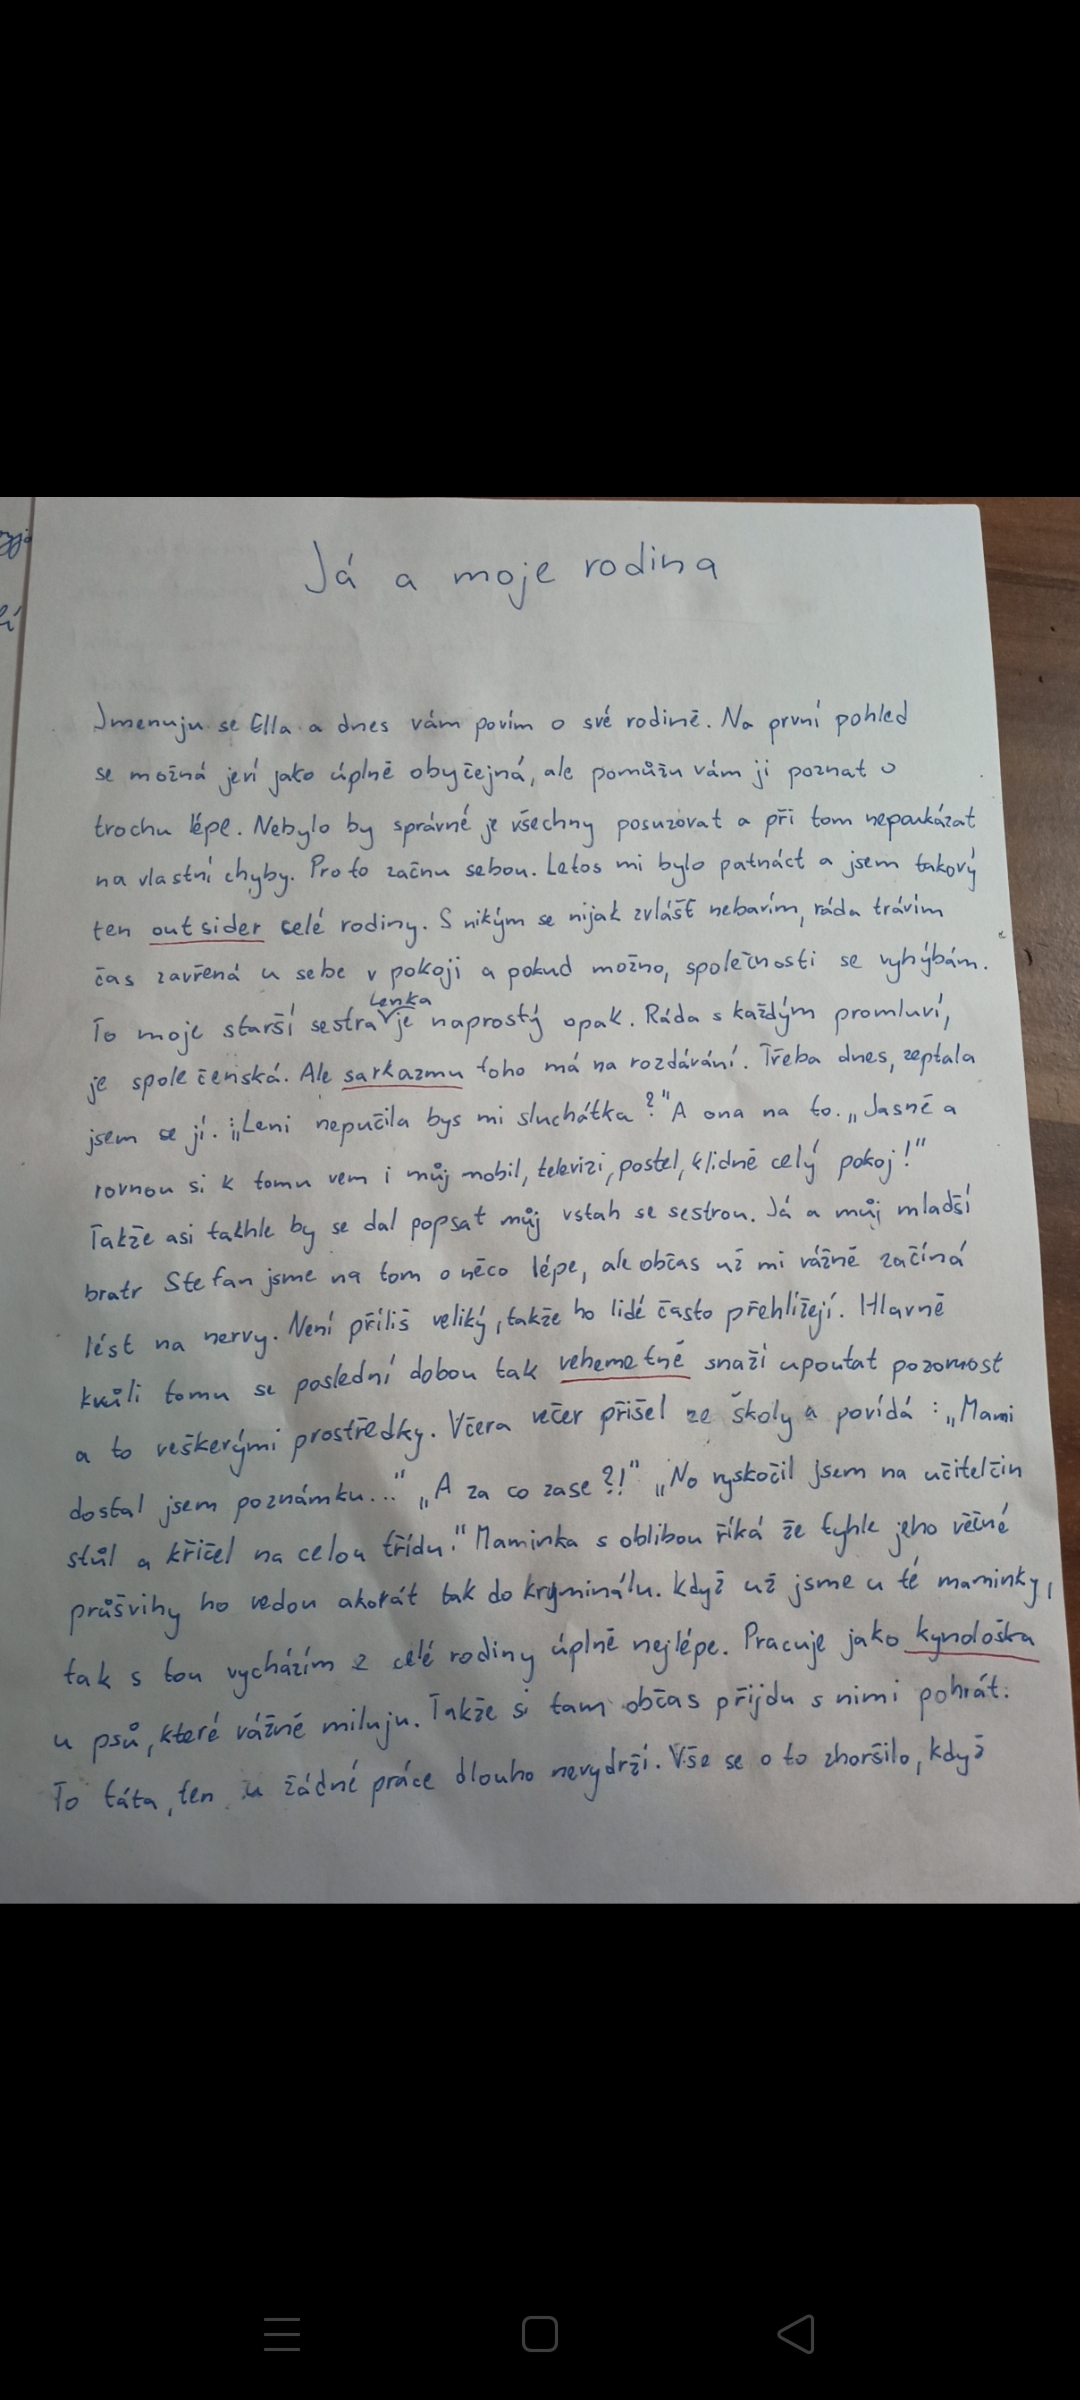 Já a moje rodina
Jmenuju se Ella a dnes vám povím o své rodině. Na první pohled
se možná jeví jako úplně obyčejná, ale pomůžu vám ji poznat o
trochu lépe. Nebylo by správné je všechny posuzovat a při tom nepoukázat
na vlastní chyby. Proto začnu sebou. Letos mi bylo patnáct a jsem takový
ten outsider celé rodiny. S nikým se nijak zvlášť nebavím, ráda trávím
čas zavřená u sebe v pokoji a pokud možno, společnosti se vyhýbám.
Lenka
To moje starší sestra je naprostý opak. Ráda s každým promluví,
je společenská. Ale sarkazmu toho má na rozdávání. Třeba dnes, zeptala
jsem se jí. „Leni nepučila bys mi sluchátka?" A ona na to. „Jasně a
rovnou si k tomu vem i můj mobil, televizi, postel, klidně celý pokoj!"
Takže asi takhle by se dal popsat můj vstah se sestrou. Já a můj mladší
bratr Stefan jsme na tom o něco lépe, ale občas už mi vážně začíná
lést na nervy. Není příliš veliký, takže ho lidé často přehlížejí. Hlavně
kvůli tomu se poslední dobou tak vehemetně snaží upoutat pozornost
a to veškerými prostředky. Včera večer přišel ze školy a povídá: „Mami
dostal jsem poznámku..." „A za co zase?!" „No vyskočil jsem na učitelčin
stůl a křičel na celou třídu." Maminka s oblibou říká že tyhle jeho věčné
průšvihy ho vedou akorát tak do kryminálu. Když už jsme u té maminky,
tak s tou vycházím z celé rodiny úplně nejlépe. Pracuje jako kynoložka
u psů, které vážně miluju. Takže si tam občas přijdu s nimi pohrát.
To táta, ten u žádné práce dlouho nevydrží. Vše se o to zhoršilo, když